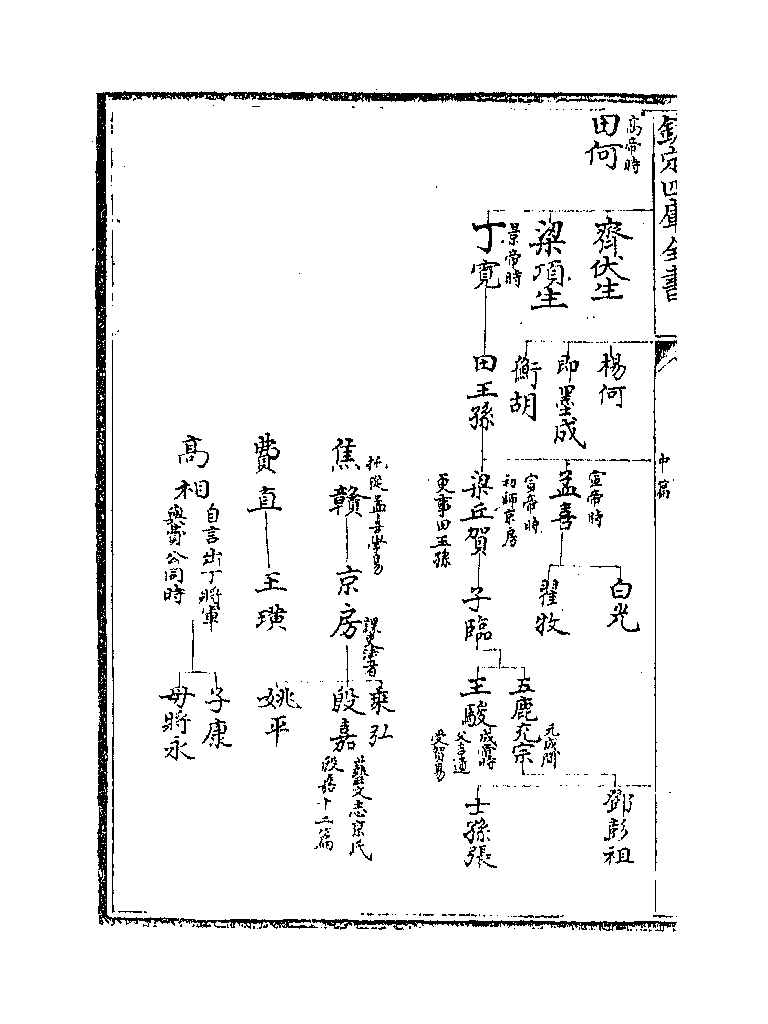 欽定四庫全書
中篇
高帝時
田何
齊伏生
梁項生
景帝時
丁寛
楊何
即墨成
衡胡
田王孫
宣帝時
孟喜
宣帝時
初師京房
梁丘賀
更事田王孫
白光
翟牧
子臨
元成間
五鹿充宗
王駿
成帝時
父吉通
受賀易
鄧彭祖
士孫張
托從孟喜學易
焦贛
京房
課吏法者
乘弘
殷嘉
姚平
藝文志京氏
殷嘉十二篇
費直
王璜
高相
自言出丁將軍
與費公同時
子康
毋將永